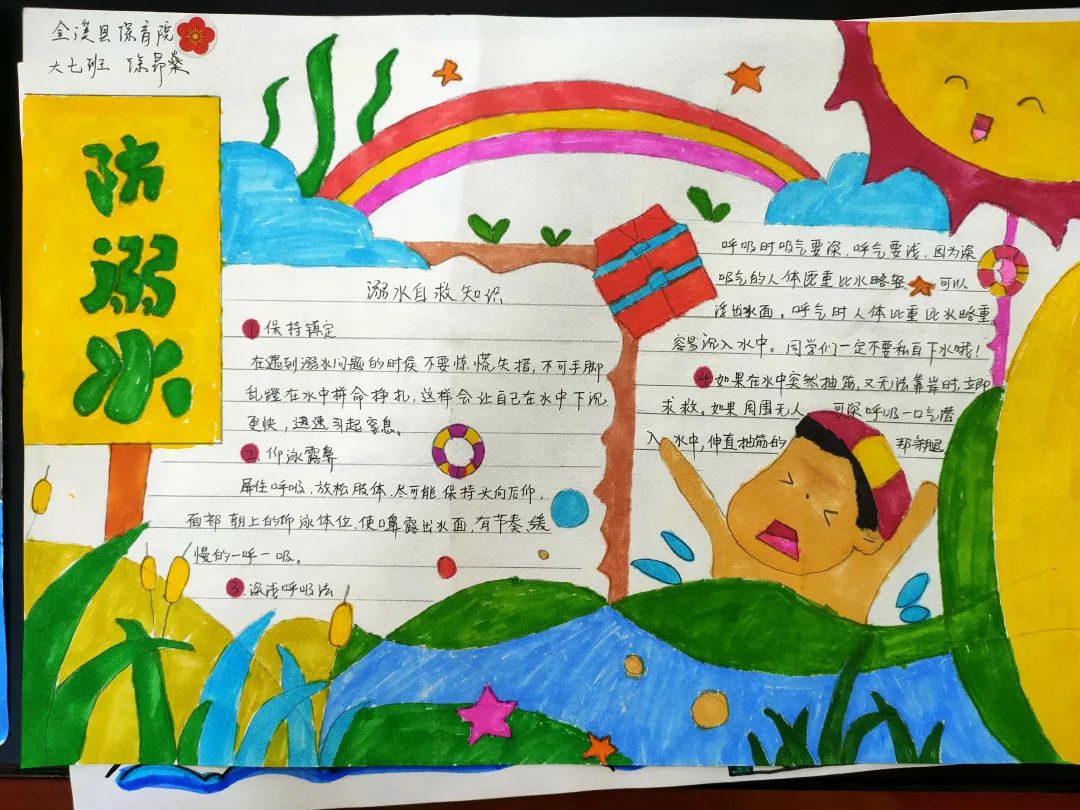 金溪县保育院
大七班 徐昂燊
防溺水
溺水自救知识
1 保持镇定
在遇到溺水问题的时侯不要惊慌失措,不可手脚
乱蹬在水中拼命挣扎,这样会让自己在水中下沉
更快,迅速引起窒息。
2.仰泳露鼻
屏住呼吸,放松肢体,尽可能保持头向后仰,
面部朝上的仰泳体位,使鼻露出水面,有节奏,缓
慢的一呼一吸。
3.深浅呼吸法
呼吸时吸气要深,呼气要浅,因为深
吸气的人体比重比水略轻 可以
浮出水面。呼气时人体比重比水略重
容易沉入水中。同学们一定不要私自下水哦!
4.如果在水中突然抽筋,又无法靠岸时,立即
求救。如果周围无人 可深呼吸一口气潜
入水中,伸直抽筋的 那条腿